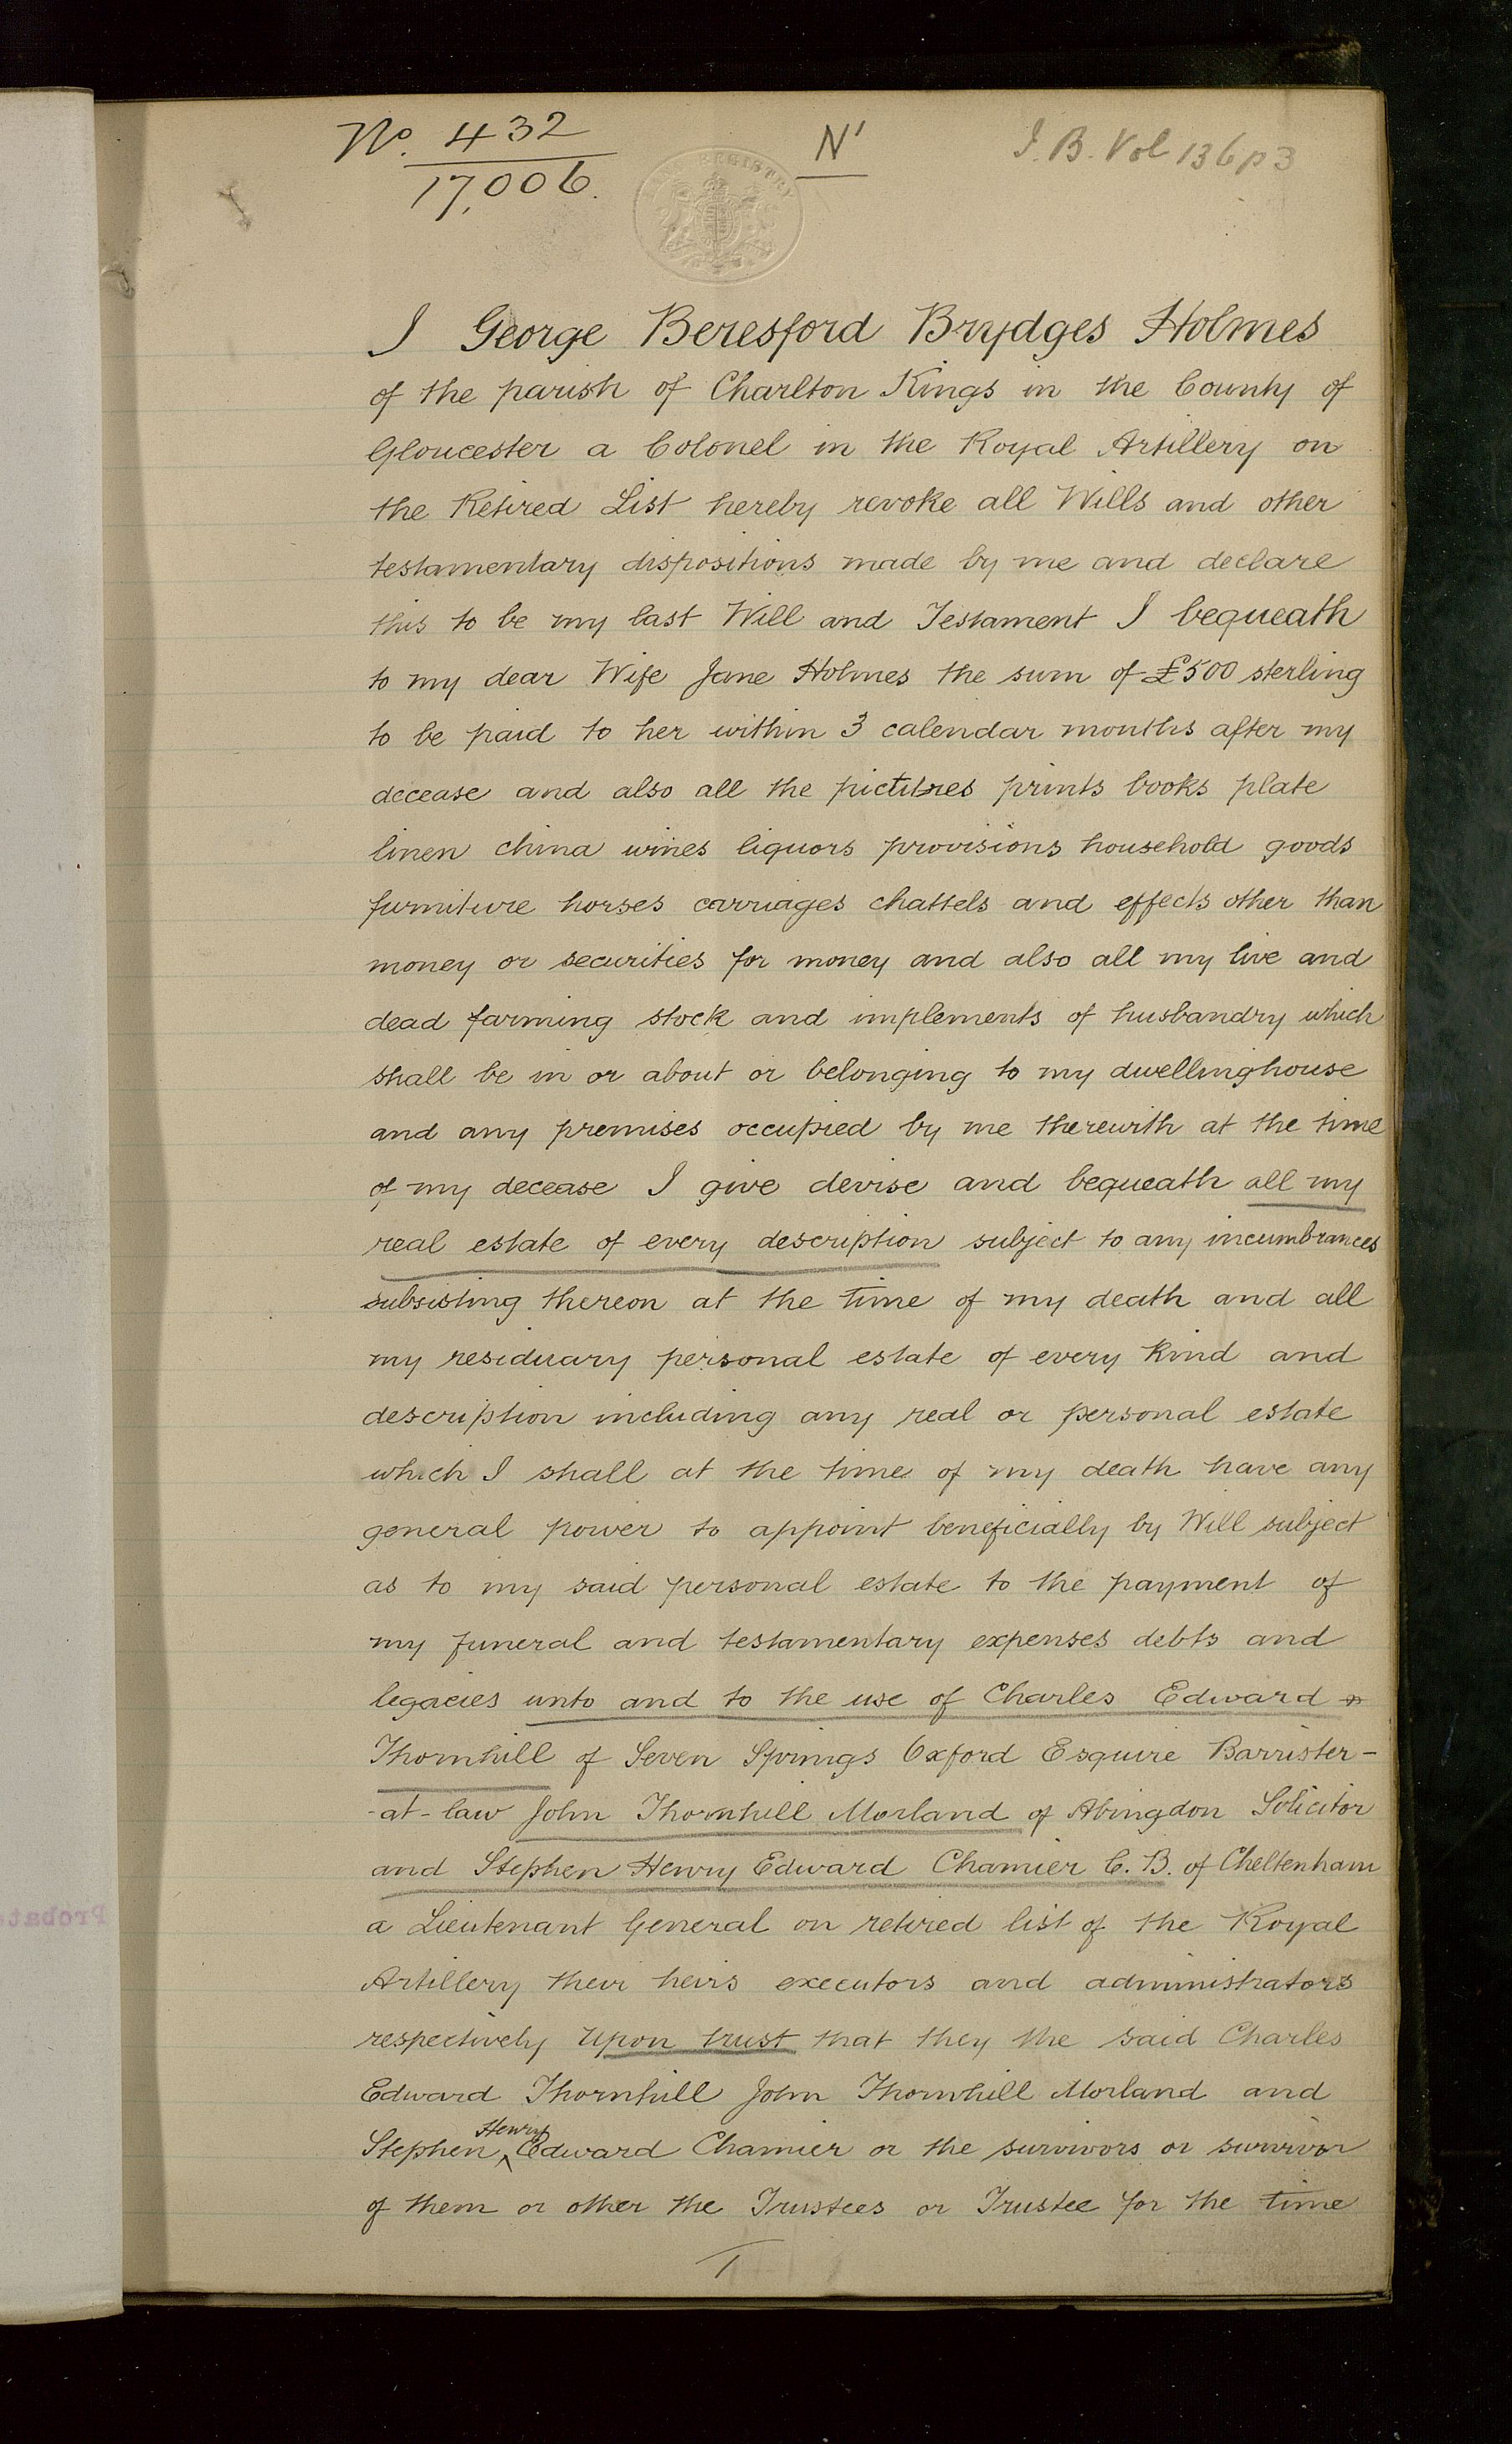 No. 432
17,006.
N'
I.B. Vol 136 p 3
I George Beresford Brydges Holmes
of the parish of Charlton Kings in the County of
Gloucester a Colonel in the Royal Artillery on
the Retired List hereby revoke all Wills and other
testamentary dispositions made by me and declare
this to be my last Will and Testament I bequeath
to my dear Wife Jane Holmes the sum of £500 sterling
to be paid to her within 3 calendar months after my
decease and also all the pictures prints books plate
linen china wines liquors provisions household goods
furniture horses carriages chattels and effects other than
money or securities for money and also all my live and
dead farming stock and implements of husbandry which
shall be in or about or belonging to my dwellinghouse
and any premises occupied by me therewith at the time
of my decease I give devise and bequeath all my
real estate of every description subject to any incumbrances
subsisting thereon at the time of my death and all
my residuary personal estate of every kind and
description including any real or personal estate
which I shall at the time of my death have any
general power to appoint beneficially by Will subject
as to my said personal estate to the payment of
my funeral and testamentary expenses debts and
legacies unto and to the use of Charles Edward
Thornhill of Seven Springs Oxford Esquire Barrister-
-at-law John Thornhill Morland of Abingdon Solicitor
and Stephen Henry Edward Chamier C.B. of Cheltenham
a Lieutenant General on retired list of the Royal
Artillery their heirs executors and administrators
respectively Upon trust that they the said Charles
Edward Thornhill John Thornhill Morland and
Stephen Henry Edward Chamier or the survivors or survivor
of them or other the Trustees or Trustee for the time
1
Probate